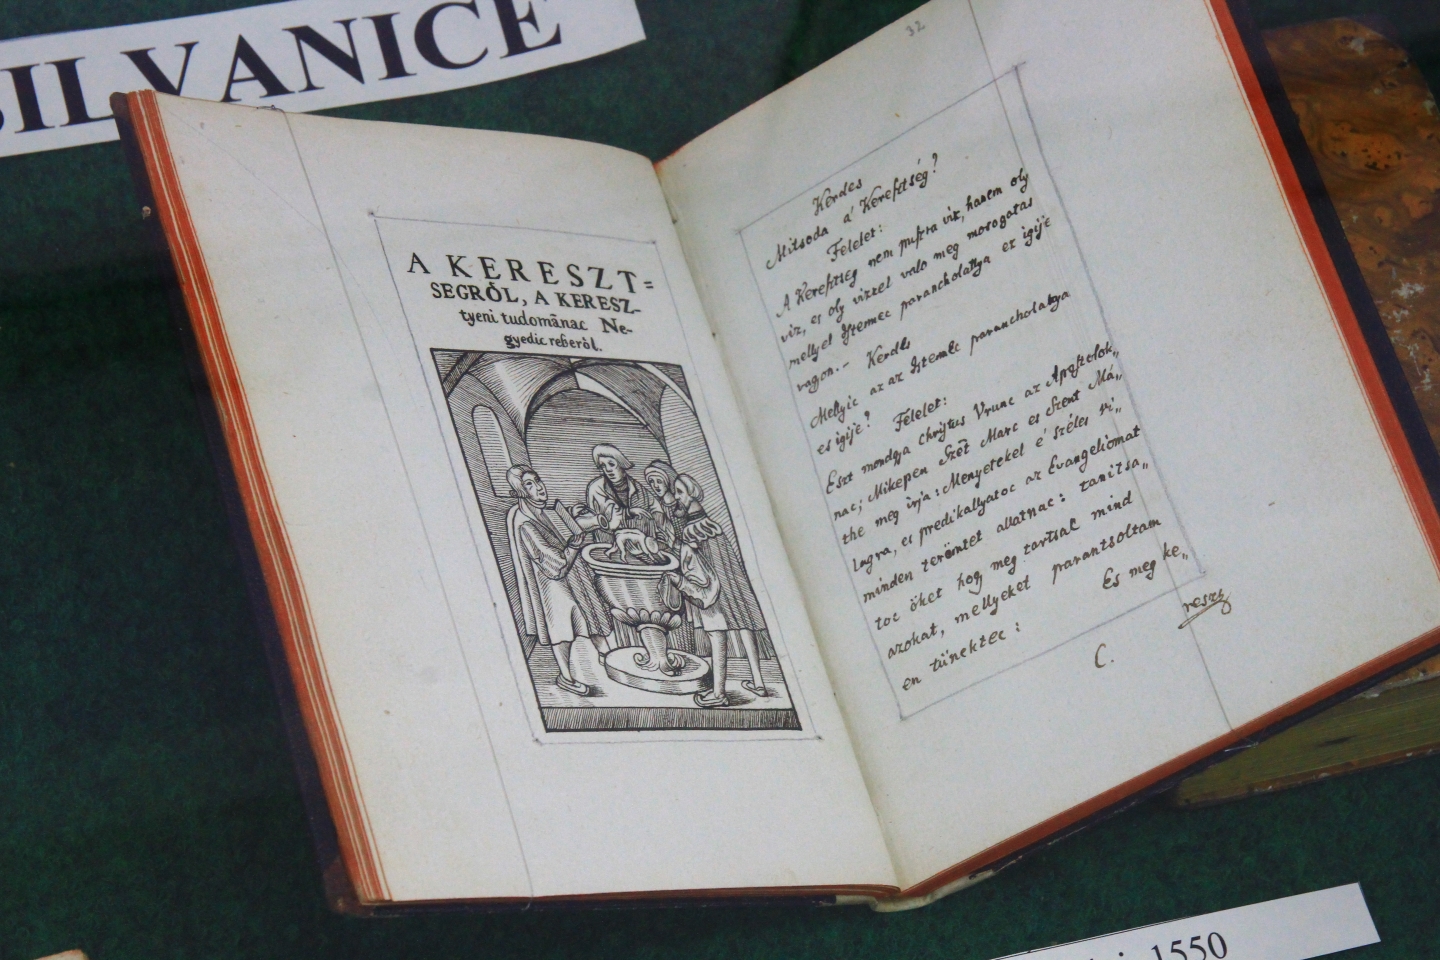 SILVANICE
A KERESZT=
SEGRÖL, A KERESZ-
tyeni tudomãnac Ne-
gyedic reßeröl.
32
Kerdes
Mitsoda a' Keresstség?
Felelet:
A Keresstseg nem pusstra viz, hanem oly
viz, es oly vizzel valo meg morogatas
mellyet Istennec parancholattya ez igije
vagyon.- Kerdes
Mellyic az az Istennec parancholattya
es igije? Felelet:
Eszt mondgya Christus Vrunc az Apostolok„
nac; Mikepen Szẽt Marc es Szent Má„
the meg irja: Mennyetekel e' széles vi„
lagra, es predikallyatoc az Evangeliomat
minden terömtet allatnac: tanitsa„
toc öket hogy meg tartsac mind
azokat, mellyeket parantsoltam
en tünektec: Es meg ke„
reszt
C.
1550